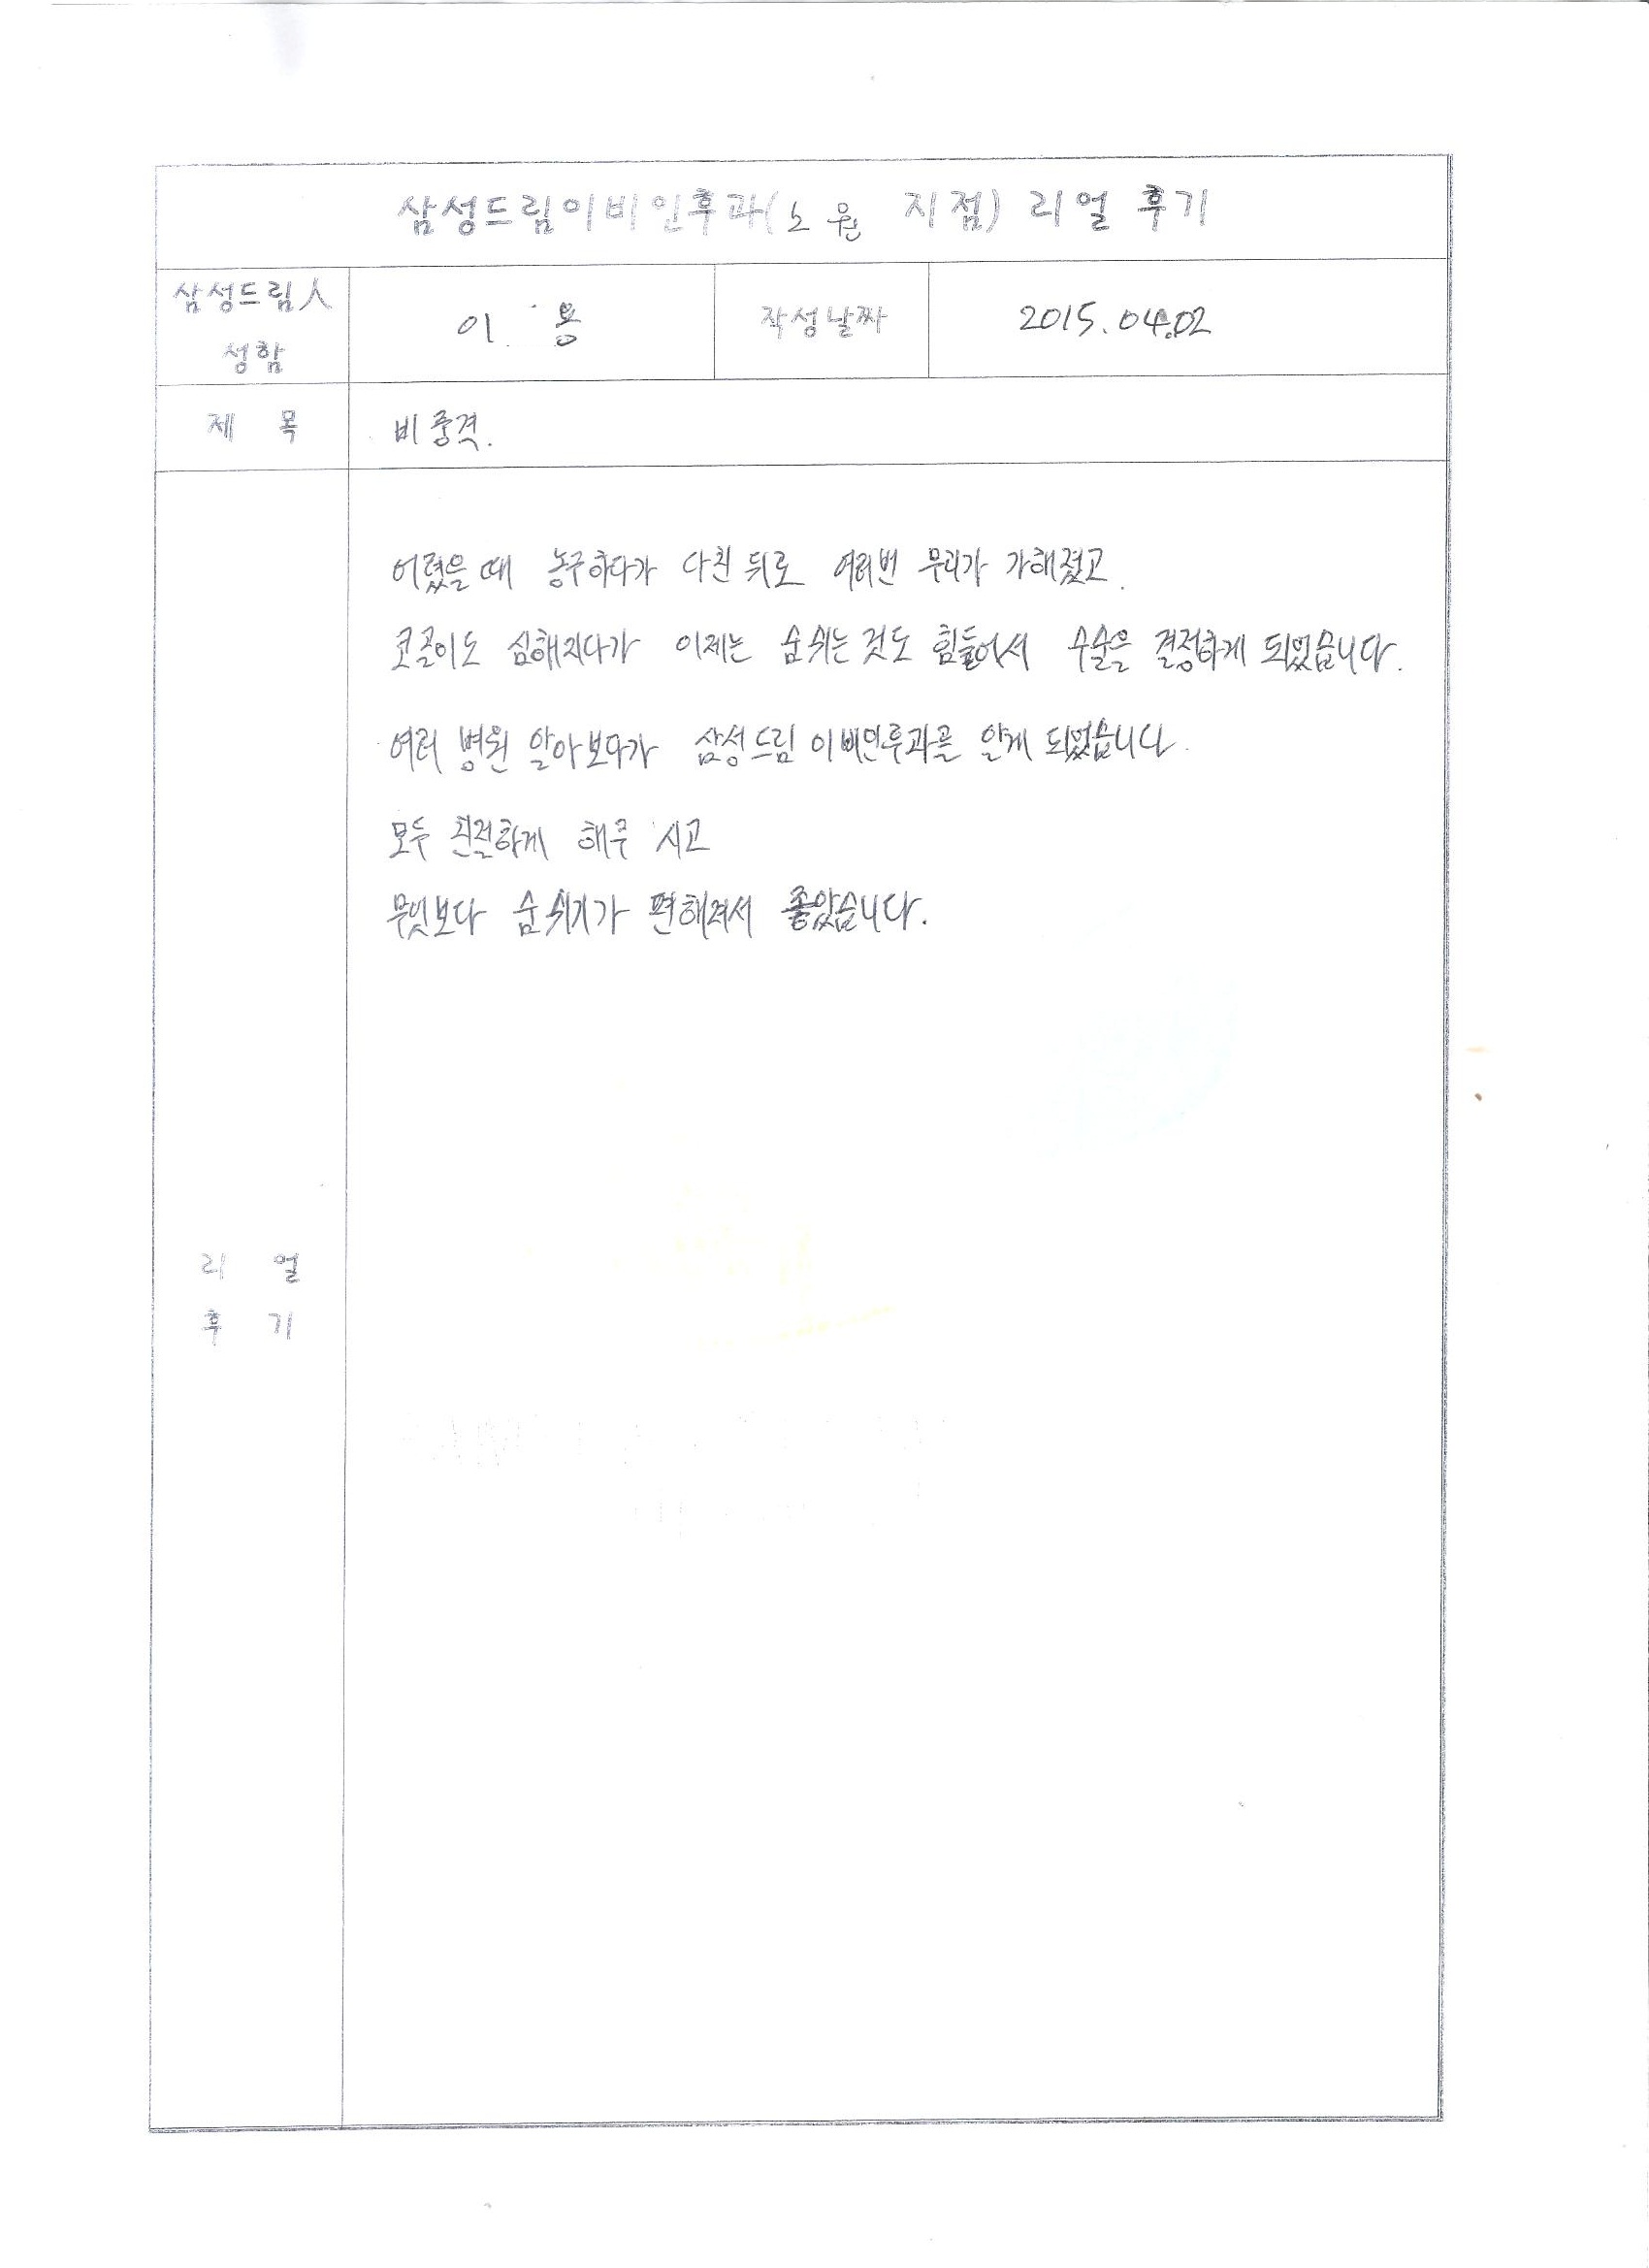 삼성드림이비인후과(노원 지점) 리얼 후기
삼성드림人 성함
이 용
작성날짜
2015.04.02
제 목
비중격.
어렸을 때 농구하다가 다친 뒤로 여러번 무리가 가해졌고
코골이도 심해지다가 이제는 숨쉬는 것도 힘들어서 수술을 결정하게 되었습니다.
여러 병원 알아보다가 삼성드림 이비인후과를 알게 되었습니다.
모두 친절하게 해주시고
무엇보다 숨쉬기가 편해져서 좋았습니다.
리 얼
후 기